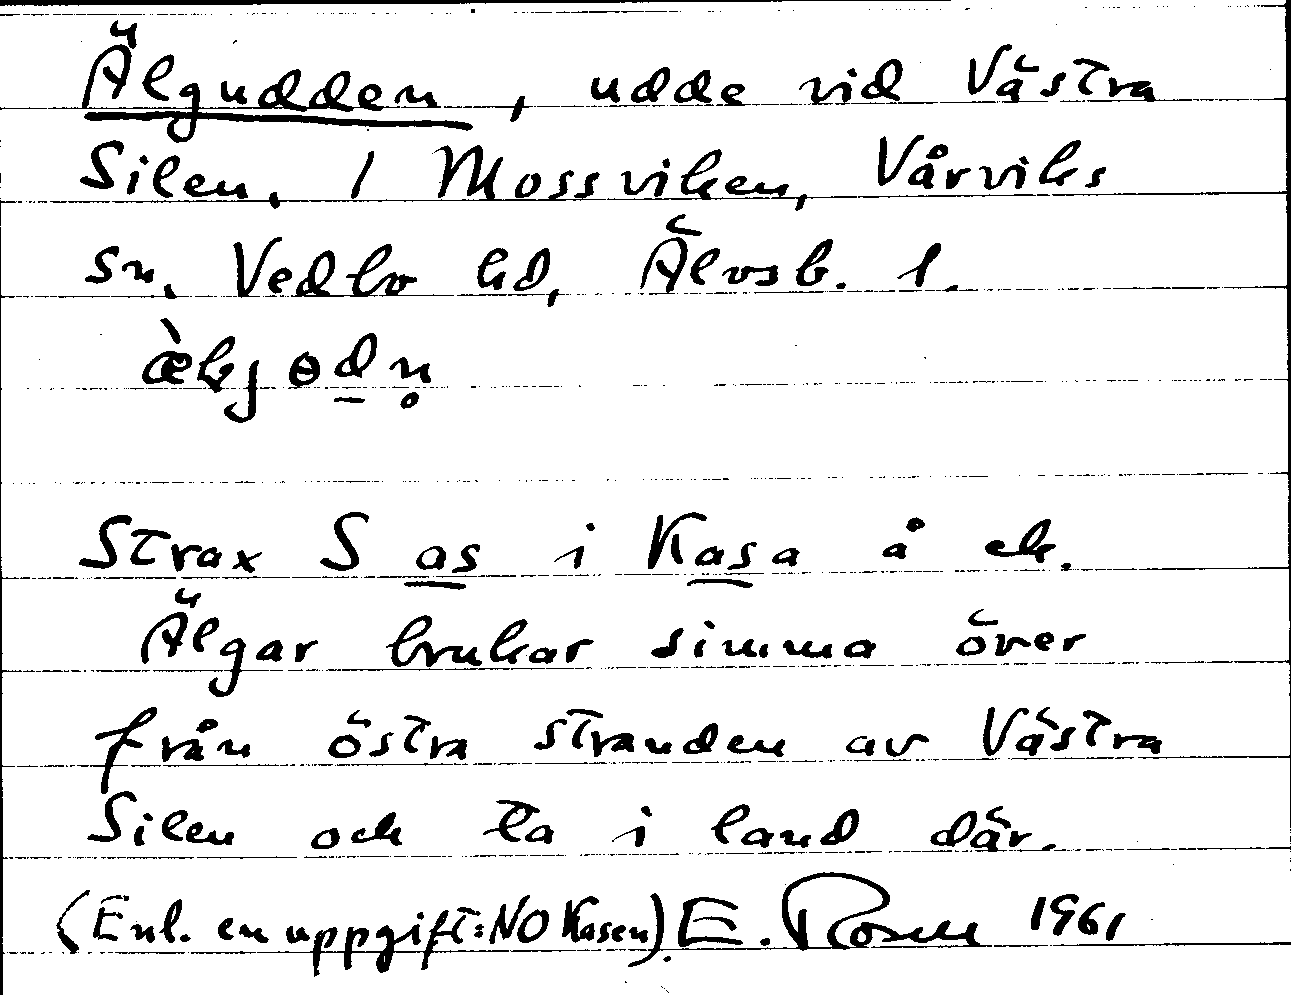 Älgudden, udde vid Västra
Silen. I Mossviken, Vårviks
sn. Vedbo hd, Älvsb. l.
æ̀lgɵdn̥
Strax S as i Kasa å ek.
Älgar brukar simma över
från östra stranden av Västra
Silen och ta i land där.
(Enl. en uppgift: NO Kasen). E. Rosell 1961